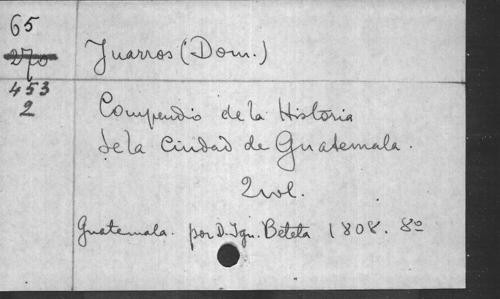 65
270
453
2
Juarros (Dom.)
Compendio de la Historia
de la Ciudad de Guatemala.
2 vol.
Guatemala. por D. Ign. Beteta 1808. 8º